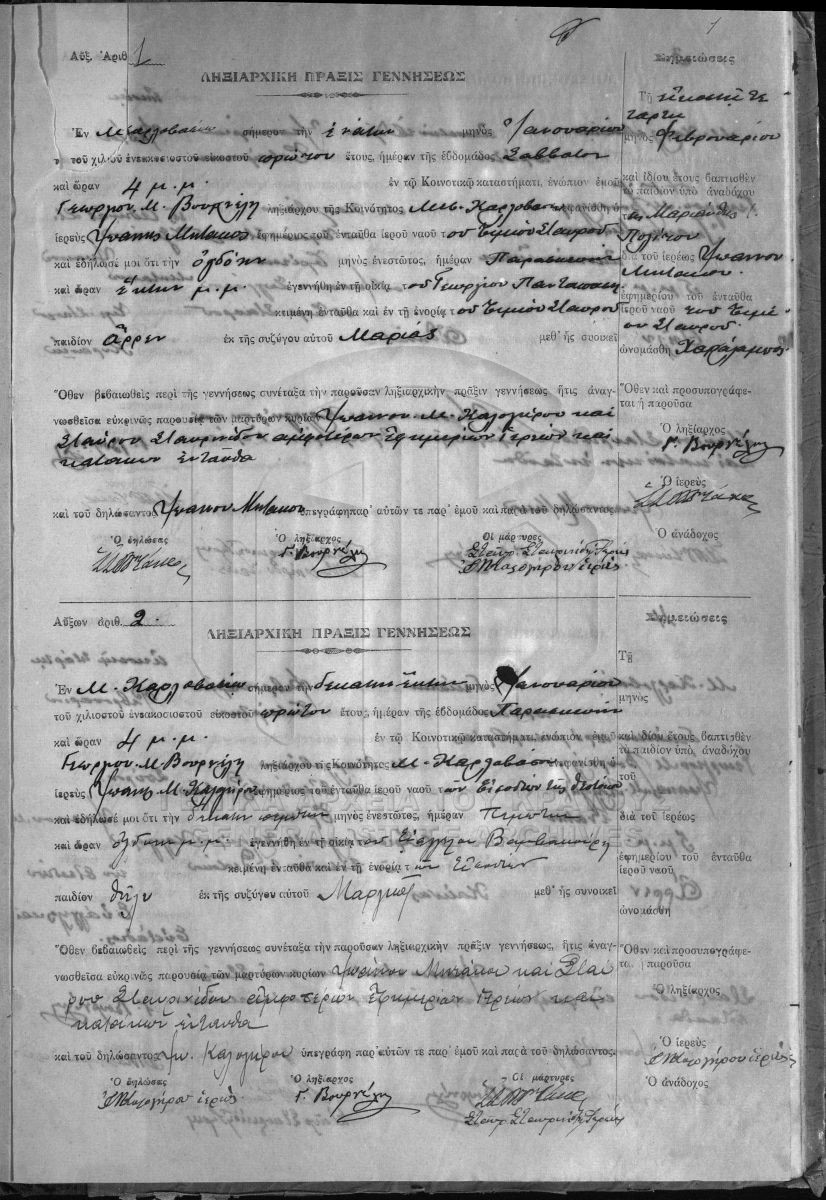 1
Αὔξ. Ἀριθ. 1
ΛΗΞΙΑΡΧΙΚΗ ΠΡΑΞΙΣ ΓΕΝΝΗΣΕΩΣ
Ἐν σήμερον τὴν ἐνάτην μηνὸς Ἰανουαρίου
τοῦ χιλιοῦ ἐνεακοσιοστοῦ εἰκοστοῦ πρώτου ἔτους, ἡμέραν τῆς ἑβδομάδος Σάββατον
καὶ ὥραν 4 μ.μ. ἐν τῷ Κοινοτικῷ καταστήματι, ἐνώπιον ἐμοῦ
Γεωργίου Μ. Βουρνέλη ληξιάρχου τῆς Κοινότητος Μεσ. Καρλοβασίου ἐμφανίσθη ὁ
ἱερεὺς Ἰωάννης Μυτακος ἐφημέριος τοῦ ἐνταῦθα ἱεροῦ ναοῦ τοῦ Τιμίου Σταυροῦ
καὶ ἐδήλωσέ μοι ὅτι τὴν ὀγδόην μηνὸς ἐνεστῶτος, ἡμέραν Παρασκευὴν
καὶ ὥραν ἕκτην μ.μ. ἐγεννήθη ἐν τῇ οἰκίᾳ τοῦ Γεωργίου
κειμένη ἐνταῦθα καὶ ἐν τῇ ἐνορίᾳ τοῦ Τιμίου Σταυροῦ
παιδίον ἄρρεν ἐκ τῆς συζύγου αὐτοῦ Μαρίας μεθ᾽ ἧς συνοικεῖ
Ὅθεν βεβαιωθεὶς περὶ τῆς γεννήσεως συνέταξα τὴν παροῦσαν ληξιαρχικὴν πρᾶξιν γεννήσεως, ἥτις ἀναγ-
νωσθεῖσα εὐκρινῶς παρουσίᾳ τῶν μαρτύρων κυρίων Ἰωάννου Μ. Καλογήρου καὶ
Σταύρου Σταυρινίδου ἀμφοτέρων ἐφημερίων ἱερέων καὶ
κατοίκων ἐνταῦθα
καὶ τοῦ δηλώσαντος Ἰωάννου Μυτακου ὑπεγράφη παρ᾽ αὐτῶν τε παρ᾽ ἐμοῦ καὶ παρὰ τοῦ δηλώσαντος.
Ὁ δηλώσας Ὁ ληξίαρχος Οἱ μάρτυρες
Γ. Βουρνέλης Σταυρ. Σταυρινίδης ἱερεύς
Ἰ Μ Καλογήρου ἱερεύς
Σημειώσεις
Τῇ εἰκοστῇ τε
τάρτῃ
μηνὸς Φεβρουαρίου
καὶ ἰδίου ἔτους βαπτισθὲν
τὸ παιδίον ὑπὸ ἀναδόχου
διὰ τοῦ ἱερέως Ἰωάννου
Μυτακου
ἐφημερίου τοῦ ἐνταῦθα
ἱεροῦ ναοῦ τοῦ Τιμί
ου Σταυροῦ
ὠνομάσθη Χαράλαμπος
Ὅθεν καὶ προσυπογράφε-
ται ἡ παροῦσα
Ὁ ληξίαρχος
Γ. Βουρνέλης
Ὁ ἱερεὺς
Ὁ ἀνάδοχος
Αὔξων ἀριθ. 2.
ΛΗΞΙΑΡΧΙΚΗ ΠΡΑΞΙΣ ΓΕΝΝΗΣΕΩΣ
Ἐν Μ. Καρλοβασίῳ σήμερον τὴν δεκάτην ἕκτην μηνὸς Ἰανουαρίου
τοῦ χιλιοστοῦ ἐνεακοσιοστοῦ εἰκοστοῦ πρώτου ἔτους, ἡμέραν τῆς ἑβδομάδος Παρασκευὴν
καὶ ὥραν 4 μ.μ. ἐν τῷ Κοινοτικῷ καταστήματι, ἐνώπιον ἐμοῦ
Γεωργίου Μ. Βουρνέλη ληξιάρχου τῆς Κοινότητος Μ. Καρλοβασίου ἐμφανίσθη ὁ
ἱερεὺς Ἰωάννης Μ. Καλογήρου ἐφημέριος τοῦ ἐνταῦθα ἱεροῦ ναοῦ τῶν Εἰσοδίων τῆς Θεοτόκου
καὶ ἐδήλωσέ μοι ὅτι τὴν δεκάτην μηνὸς ἐνεστῶτος, ἡμέραν Πέμπτην
καὶ ὥραν μ.μ. ἐγεννήθη ἐν τῇ οἰκίᾳ τοῦ
κειμένη ἐνταῦθα καὶ ἐν τῇ ἐνορίᾳ τῶν Εἰσοδίων
παιδίον θῆλυ ἐκ τῆς συζύγου αὐτοῦ μεθ᾽ ἧς συνοικεῖ
Ὅθεν βεβαιωθεὶς περὶ τῆς γεννήσεως συνέταξα τὴν παροῦσαν ληξιαρχικὴν πρᾶξιν γεννήσεως, ἥτις ἀναγ-
νωσθεῖσα εὐκρινῶς παρουσίᾳ τῶν μαρτύρων κυρίων Ἰωάννου Μυτάκου καὶ Σταύ
ρου Σταυρινίδου ἀμφοτέρων ἐφημερίων ἱερέων καὶ
κατοίκων ἐνταῦθα
καὶ τοῦ δηλώσαντος Ἰω. Καλογήρου ὑπεγράφη παρ᾽ αὐτῶν τε παρ᾽ ἐμοῦ καὶ παρὰ τοῦ δηλώσαντος.
Ὁ δηλώσας Ὁ ληξίαρχος Οἱ μάρτυρες
Ἰ Μ Καλογήρου ἱερεύς Γ. Βουρνέλης
Σταυρ. Σταυρινίδης ἱερεύς
Σημειώσεις
Τῇ
μηνὸς
καὶ ἰδίου ἔτους βαπτισθὲν
τὸ παιδίον ὑπὸ ἀναδόχου
τοῦ
διὰ τοῦ ἱερέως
ἐφημερίου τοῦ ἐνταῦθα
ἱεροῦ ναοῦ
ὠνομάσθη
Ὅθεν καὶ προσυπογράφε-
ται ἡ παροῦσα
Ὁ ληξίαρχος
Ὁ ἱερεὺς
Ἰ Μ Καλογήρου ἱερεύς
Ὁ ἀνάδοχος